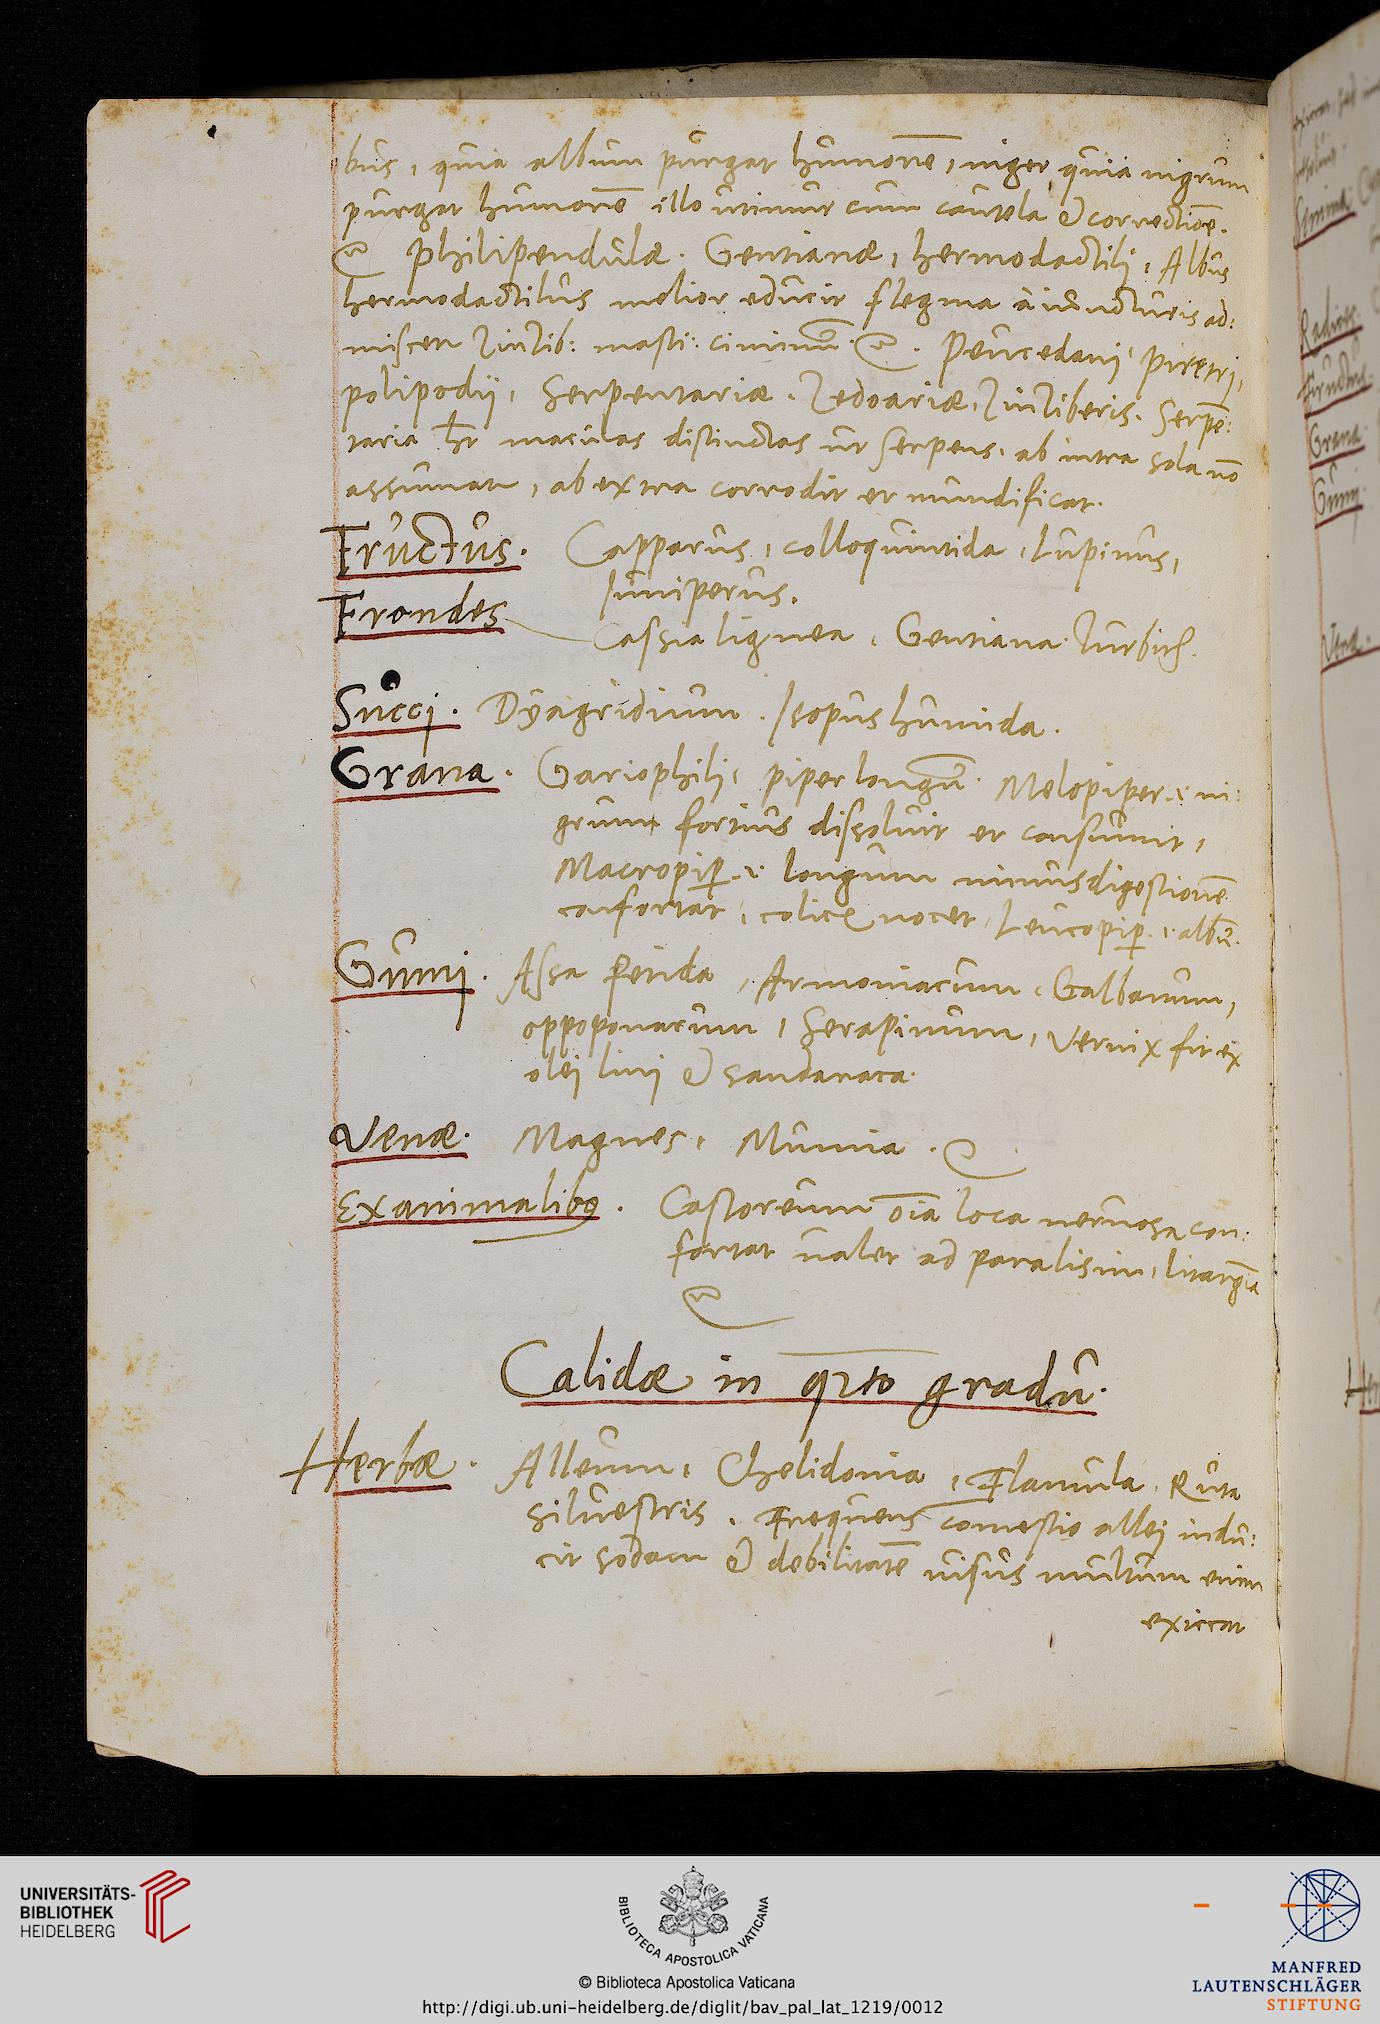 bus, quia album purgat humorē, niger quia nigrum
purgat humorē illo utimur cum cautela & correctiōe.
Philipendulæ. Gentianæ, hermodactili, Albus
hermodactilus melior educit flegma à iuncturis ad:
miscen zinzib: masti: ciminū. Peucedani, piretri,
polipodij, Serpentariæ. Zedoariæ, Zinziberis. Serpē:
taria hr̄ maculas distinctas ut serpens. ab intra sola nō
assumatu, ab extra corrodit et mundificat.
Fructus. Capparus, colloquintida, Lupinus,
Iuniperus.
Frondes Cassia lignea, Gentiana. Turbith.
Succi. Dyagridium. Isopus humida.
Grana. Gariophili, piper longū. Melopiper .i. ni:
grum fortius dissoluit et consumit,
Macropip̄ .i. longum minus digestionē
confortat, colice nocet, Leucopip̄ .i. albū.
Gummi. Assa fetida, Armoniacum, Galbanum,
oppoponacum, Serapinum, Vernix fit ex
olei lini & sandaraca.
Venæ. Magnes, Mumia.
Ex animalibꝰ. Castoreum oīa loca neruosa con:
fortat ualet ad paralisim, litargīa
Calidæ in qrto gradu.
Herbæ. Alleum, Chelidonia, Flamula. Ruta
siluestris. Frequens comestio allei indu:
cit sodam & debilitatē uisus multum enim
exiccat
Semina
Radices.
Fructus.
Grana
Gumi.
Venæ.
UNIVERSITÄTS-
BIBLIOTHEK
HEIDELBERG
BIBLIOTECA APOSTOLICA VATICANA
© Biblioteca Apostolica Vaticana
http://digi.ub.uni-heidelberg.de/diglit/bav_pal_lat_1219/0012
MANFRED
LAUTENSCHLÄGER
STIFTUNG